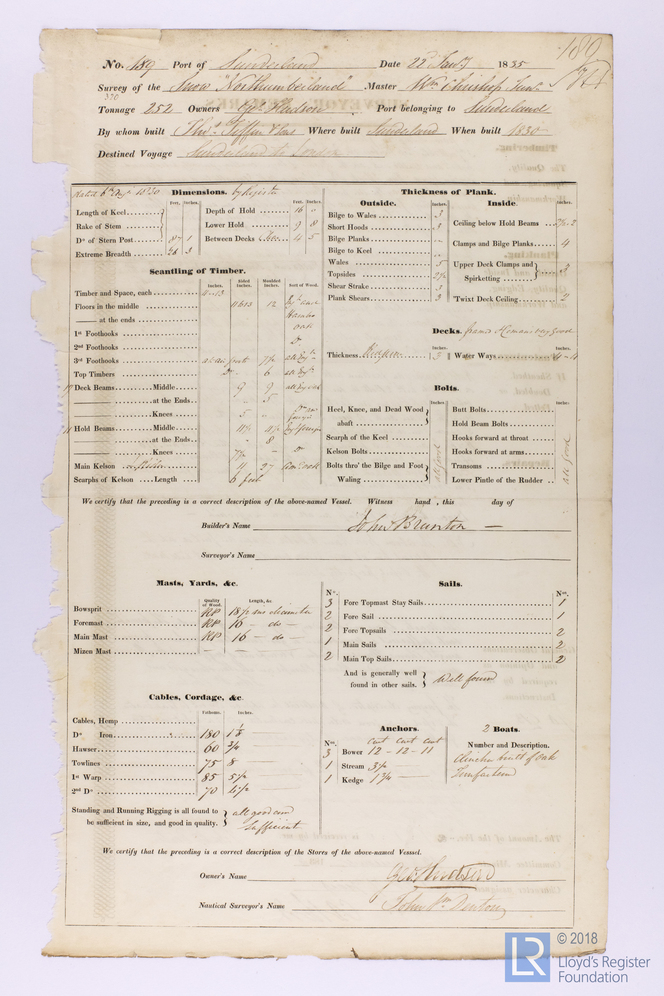 189
No. 189 Port of Sunderland Date 22d Jany 1835
Survey of the Snow "Northumberland" Master Wm
320
Tonnage 252 Owners Geo Hudson Port belonging to Sunderland
By whom built Thos Tiffin & Son Where built Sunderland When built 1830
Destined Voyage Sunderland to London
Dimensions. by Register
Feet. Inches.
Length of Keel
Rake of Stem
Do of Stern Post 8 1
Extreme Breadth 26 3
Feet. Inches.
Depth of Hold 16
Lower Hold 9 8
Between Decks 4 5
Scantling of Timber.
Inches. Sided Inches. Moulded Inches. Sort of Wood.
Timber and Space, each
Floors in the middle 12
at the ends
oak
1st Foothooks Do
2nd Foothooks
3rd Foothooks 7½
Top Timbers Do 6
Deck Beams Middle 9 9
at the Ends 5
Knees 5
Hold Beams Middle
at the Ends 8
Knees 7½
Main Kelson 11 27
Scarphs of Kelson Length 6 feet
Thickness of Plank.
Outside. Inches.
Bilge to Wales 3
Short Hoods 3
Bilge Planks
Bilge to Keel
Wales 5
Topsides 2½
Shear Strake 3
Plank Shears 3
Inside. Inches.
Ceiling below Hold Beams
Clamps and Bilge Planks 4
Upper Deck Clamps and Spirketting 3
'Twixt Deck Ceiling 2
Decks. good
Inches. Inches.
Thickness 3 Water Ways
Bolts.
Inches. Inches.
Heel, Knee, and Dead Wood abaft
Scarph of the Keel
Kelson Bolts
Bolts thro' the Bilge and Foot Waling
all good
Butt Bolts
Hold Beam Bolts
Hooks forward at throat
Hooks forward at arms
Transoms
Lower Pintle of the Rudder
all good
We certify that the preceding is a correct description of the above-named Vessel. Witness hand , this day of
Builder's Name John Brunton
Surveyor's Name
Masts, Yards, &c.
Quality of Wood. Length, &c.
Bowsprit RP 18½ ins diameter
Foremast RP 16 — do —
Main Mast RP 16 — do —
Mizen Mast
Sails.
No. Nos.
3 Fore Topmast Stay Sails 1
2 Fore Sail 1
2 Fore Topsails 2
1 Main Sails 2
2 Main Top Sails 2
And is generally well found in other sails. Well found
Cables, Cordage, &c.
Fathoms. Inches.
Cables, Hemp
Do Iron 180
Hawser 60
Towlines 75 8
1st Warp 85 5½
2nd Do 70 4½
Standing and Running Rigging is all found to be sufficient in size, and good in quality. all good and sufficient
Anchors.
Nos. cwt cwt cwt
3 Bower 12 - 12 - 11
1 Stream 3½
1 Kedge
2 Boats.
Number and Description.
Clincher built of Oak
We certify that the preceding is a correct description of the Stores of the above-named Vesssel.
Owner's Name Geo Hudson
Nautical Surveyor's Name John Denton
LR
© 2018
Lloyd's Register
Foundation